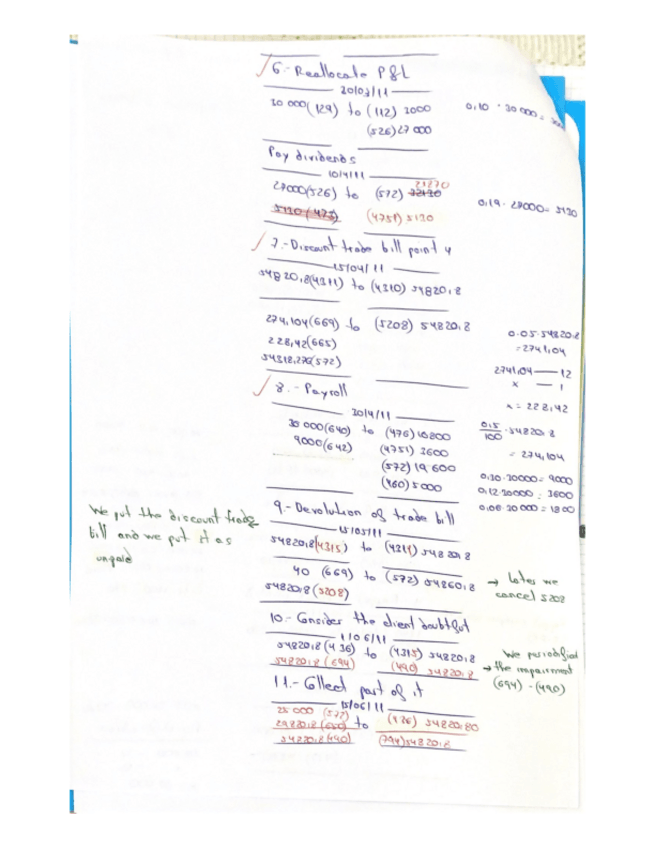 6.- Reallocate P&L
20/03/11
30 000 (129) to (112) 3000
(526) 27 000
0,10 · 30 000 =
Pay dividends
10/4/11
27000 (526) to (572)
23270
(4751) 5130
0,19 · 27000 = 5130
7.- Discount trade bill point 4
15/04/11
54820,8 (4311) to (4310) 54820,8
274,104 (669) to (5208) 54820,8
228,42 (665)
54318,276 (572)
0.05·54820.8
= 2741,04
2741,04 — 12
x — 1
x = 228,42
8.- Payroll
30/4/11
30 000 (640) to (476) 10800
9000 (642) (4751) 3600
(572) 19 600
(460) 5000
0,5/100 · 54820,8
= 274,104
0,30·30000 = 9000
0,12·30000 = 3600
0,06·30 000 = 1800
9.- Devolution of trade bill
15/05/11
54820,8 (4315) to (4311) 54820,8
We put the discount trade
bill and we put it as
unpaid
40 (669) to (572) 54860,8
54820,8 (5208)
→ Later we
cancel 5208
10.- Consider the client doubtful
1/06/11
54820,8 (436) to (4315) 54820,8
54820,8 (694) (490) 54820,8
→ the impairment
(694) - (490)
11.- Collect part of it
15/06/11
25 000 (572)
29820,8 (650) to (436) 54820,80
54820,8 (490) (794) 54820,8